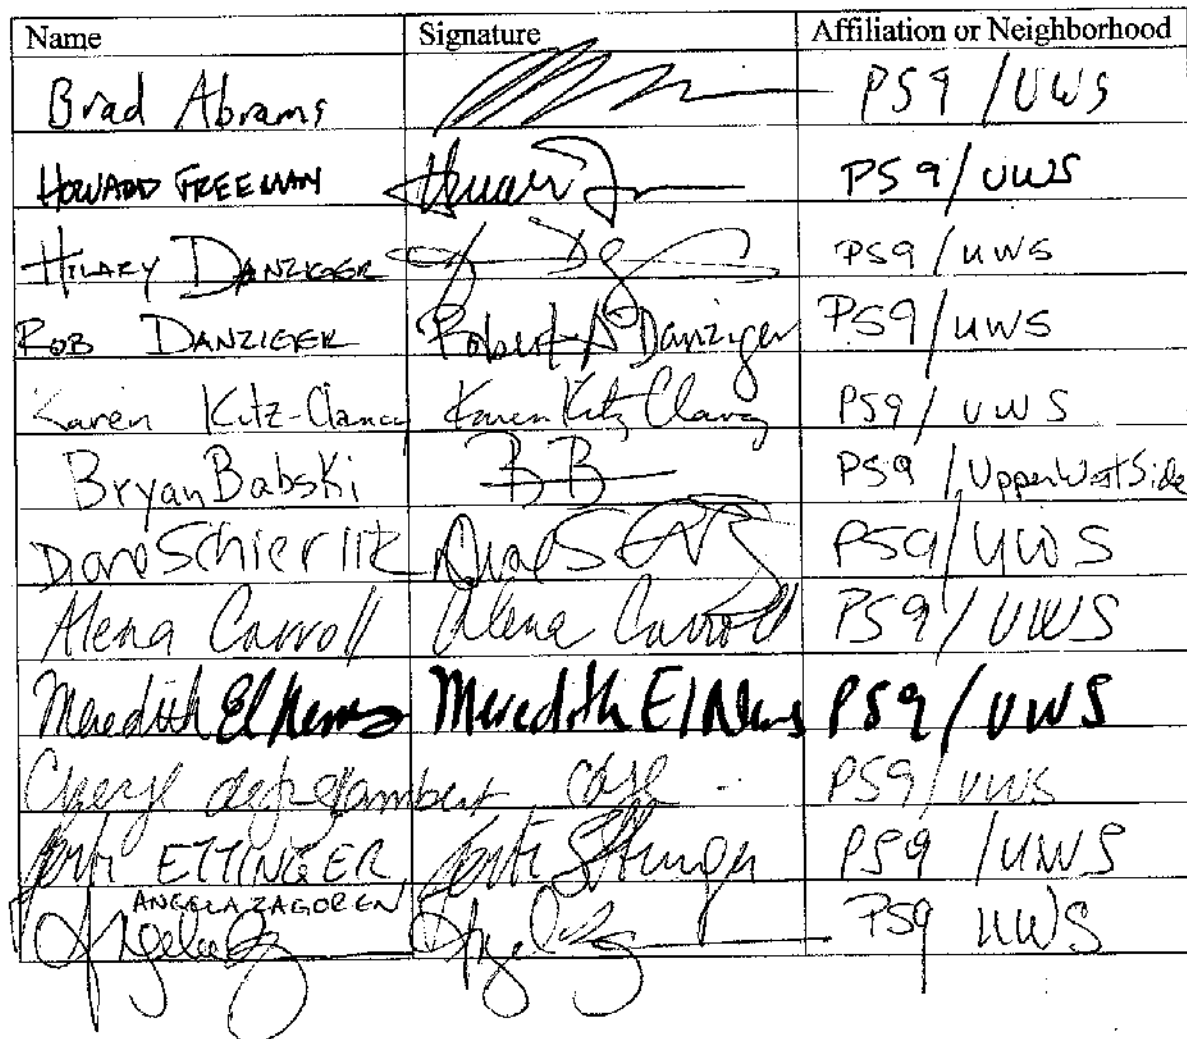 Name Signature Affiliation or Neighborhood
Brad Abrams PS9 / UWS
HOWARD FREEMAN PS9/UWS
HILARY DANZIGER PS9/UWS
ROB DANZIGER Robert A Danziger PS9/UWS
Karen Kitz-Clancy Karen Kitz Clancy PS9/UWS
Bryan Babski BB PS9 / Upper West Side
Schierlitz PS9/UWS
Alena Carroll Alena Carroll PS9/UWS
Meredith Meredith PS9/UWS
Cheryl PS9/UWS
ETTINGER PS9 /UWS
ANGELA ZAGOREN
PS9 UWS